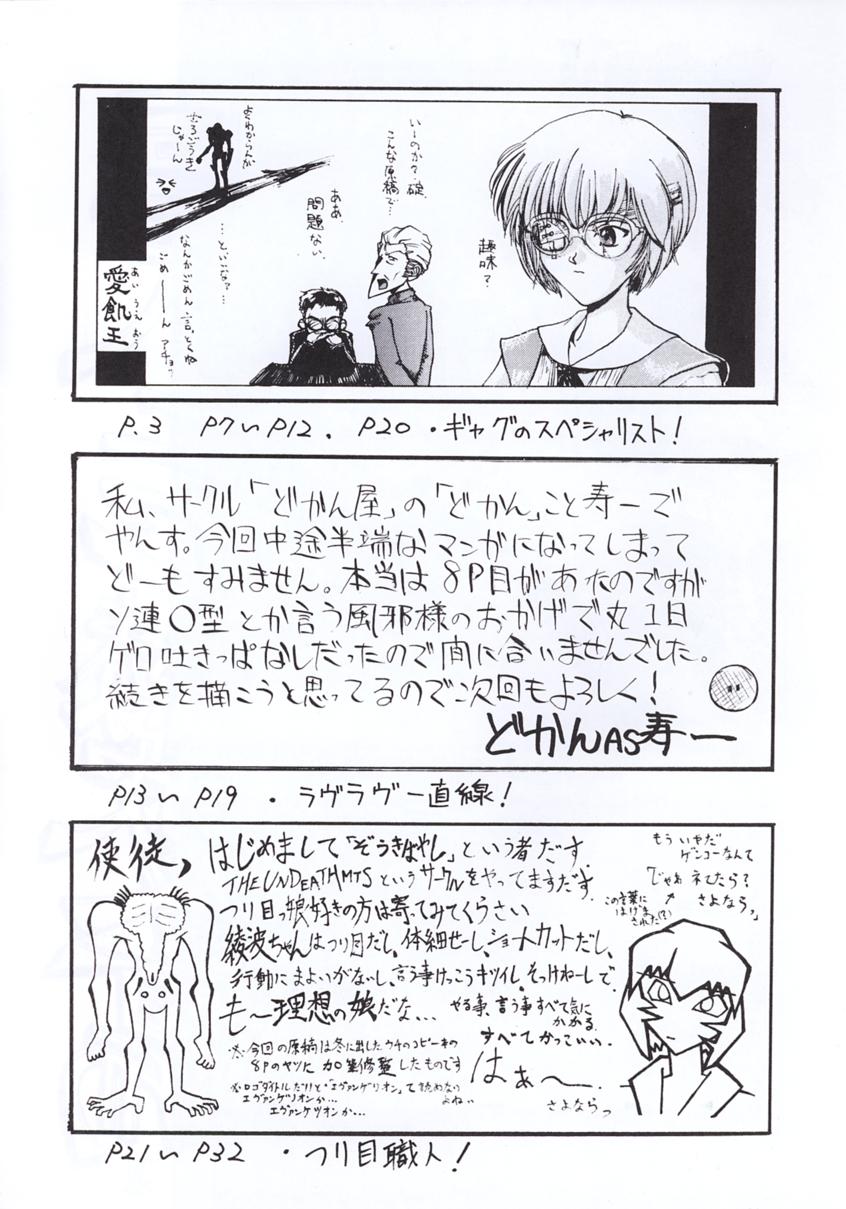 いーのか?碇、
こんな原稿で…
ああ、
問題
ない。
趣味?
…といーな?…
よくわからんが
しょごうき
じゃーん
なんかごめん 言っとくね
ごめーーん アチョッ
あいうえおう
愛飢王
P.3 P7〜P12. P20・ギャグのスペシャリスト!
私、サークル「どかん屋」の「どかん」こと寿一で
やんす。今回中途半端なマンガになってしまって
どーもすみません。本当は8P目があったのですが
ソ連〇型とか言う風邪様のおかげで丸1日
ゲロ吐きっぱなしだったので間に合いませんでした。
続きを描こうと思ってるので次回もよろしく!
どかんAS寿一
P13〜P19・ラヴラヴ一直線!
使徒、
はじめまして「ぞうきばやし」という者だす。
THE UNDEATHMTSというサークルをやってますだす。
つり目っ娘好きの方は寄ってみてくらさい
綾波ちゃんはつり目だし、体細せーし、ショートカットだし、
行動にまよいがないし、言う事けっこうキツイし、そっけねーしで、
も〜理想の娘だな… やる事、言う事すべて気に
かかる。
すべてかっこいい。
はぁ〜
※今回の原稿は冬に出したウチのコピー本の
8Pのヤツに加筆修整したものです
※ロゴタイトルだけど・「エヴァンゲリオン」て読めない
よねぃ
エヴァンゲリオンか…
エヴァンケツオンか…
もういやだ
ゲンコーなんて
「じゃあ ネてたら?
さよなら」
この言葉に
はげま
された(?)
さよならっ
P21〜P32・つり目職人!